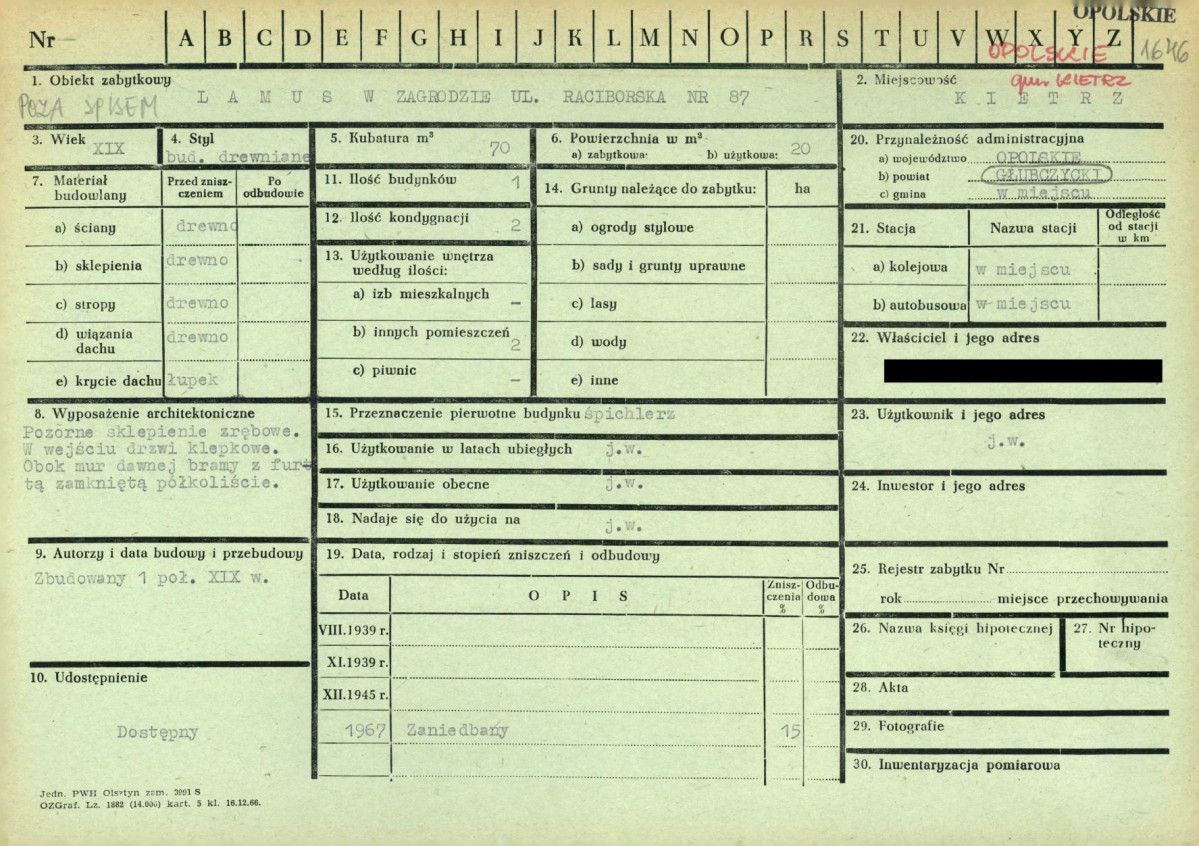 OPOLSKIE
Nr A B C D E F G H I J K L M N O P R S T U V W X Y Z
OPOLSKIE 1646
gm. KIETRZ
1. Obiekt zabytkowy
POZA SPISEM
L A M U S W ZAGRODZIE UL. RACIBORSKA NR 87
2. Miejscowość
K I E T R Z
3. Wiek
XIX
4. Styl
bud. drewniane
5. Kubatura m³
70
6. Powierzchnia w m²
a) zabytkowa: b) użytkowa: 20
7. Materiał budowlany
Przed znisz-
czeniem
Po
odbudowie
a) ściany drewno
b) sklepienia drewno
c) stropy drewno
d) wiązania
dachu drewno
e) krycie dachu łupek
8. Wyposażenie architektoniczne
Pozorne sklepienie zrębowe.
W wejściu drzwi klepkowe.
Obok mur dawnej bramy z furt
tą zamkniętą półkoliście.
9. Autorzy i data budowy i przebudowy
Zbudowany 1 poł. XIX w.
10. Udostępnienie
Dostępny
11. Ilość budynków 1
12. Ilość kondygnacji 2
13. Użytkowanie wnętrza
według ilości:
a) izb mieszkalnych –
b) innych pomieszczeń 2
c) piwnic –
14. Grunty należące do zabytku: ha
a) ogrody stylowe
b) sady i grunty uprawne
c) lasy
d) wody
e) inne
15. Przeznaczenie pierwotne budynku śpichlerz
16. Użytkowanie w latach ubiegłych j.w.
17. Użytkowanie obecne j.w.
18. Nadaje się do użycia na j.w.
19. Data, rodzaj i stopień zniszczeń i odbudowy
Data O P I S Znisz-
czenia
% Odbu-
dowa
%
VIII.1939 r.
XI.1939 r.
XII.1945 r.
1967 Zaniedbany 15
20. Przynależność administracyjna
a) województwo OPOLSKIE
b) powiat GŁUBCZYCKI
c) gmina w miejscu
21. Stacja Nazwa stacji Odległość
od stacji
w km
a) kolejowa w miejscu
b) autobusowa w miejscu
22. Właściciel i jego adres
23. Użytkownik i jego adres
j.w.
24. Inwestor i jego adres
25. Rejestr zabytku Nr
rok miejsce przechowywania
26. Nazwa księgi hipotecznej
27. Nr hipo-
teczny
28. Akta
29. Fotografie
30. Inwentaryzacja pomiarowa
Jedn. PWH Olsztyn zam. 3991 S
OZGraf. Lz. 1882 (14.000) kart. 5 kl. 16.12.66.